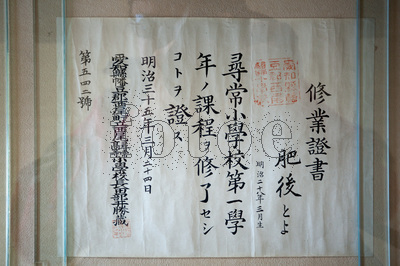 修業證書
肥後とよ
明治二十八年三月生
尋常小學校第一學
年ノ課程ヲ修了セシ
コトヲ證ス
明治三十五年三月二十四日
愛知縣幡豆郡
第五四二號